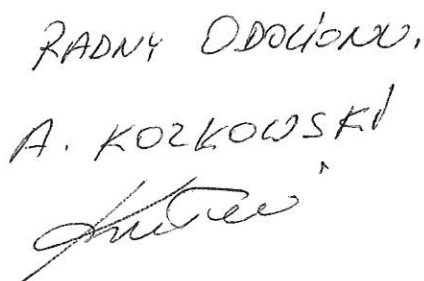 RADNY ODOLIONU.
A. KOZKOWSKI